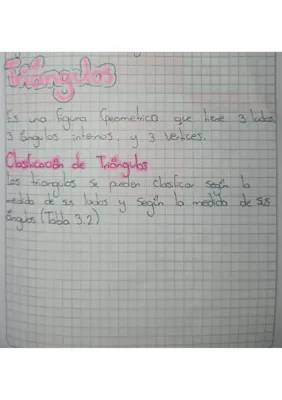 Triángulos
Es una figura Geometrica que tiene 3 lados,
3 ángulos internos, y 3 vertices.
Clasificación de Triángulos
Los triangulos se pueden clasificar según la
medida de sus lados y según la medida de sus
ángulos (Tabla 3.2)